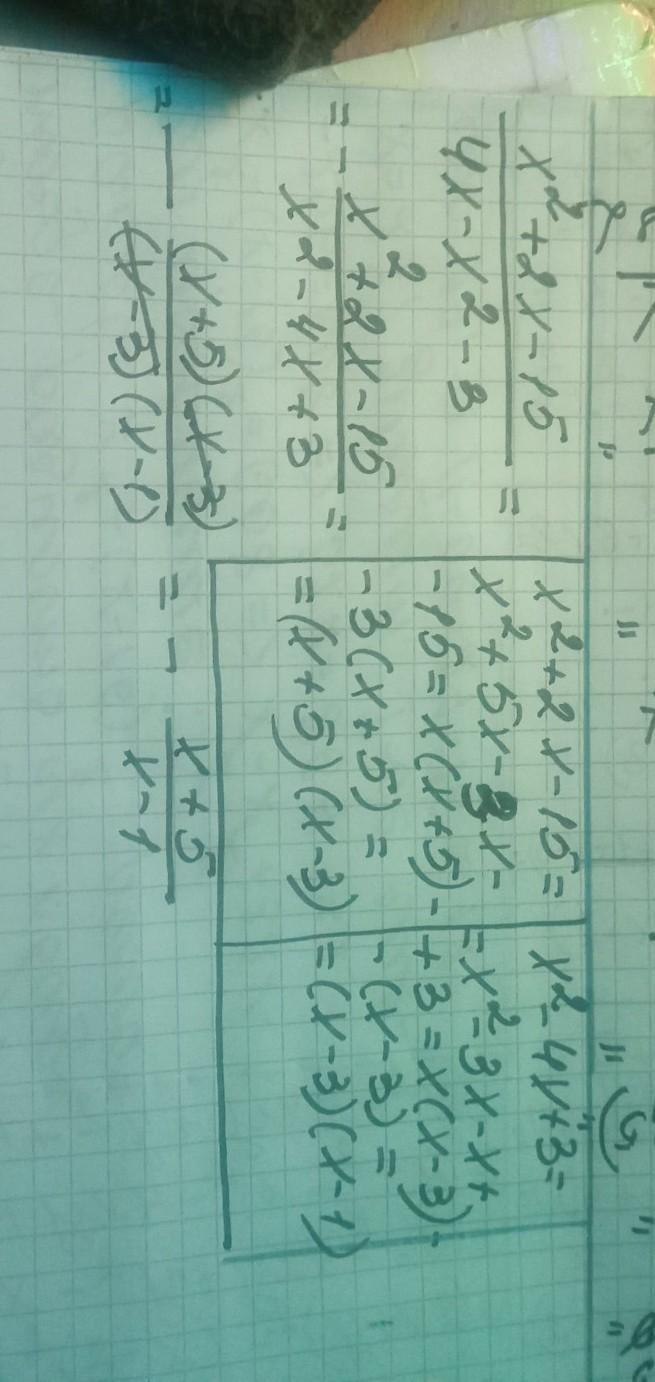 x² + 2x - 15
4x - x² - 3 =
= - x² + 2x - 15
x² - 4x + 3 =
= - (x + 5)(x - 3)
(x - 3)(x - 1) = - x + 5
x - 1
x² + 2x - 15 =
x² + 5x - 3x -
- 15 = x(x + 5) -
- 3(x + 5) =
= (x + 5)(x - 3)
x² - 4x + 3 =
= x² - 3x - x +
+ 3 = x(x - 3) -
- (x - 3) =
= (x - 3)(x - 1)